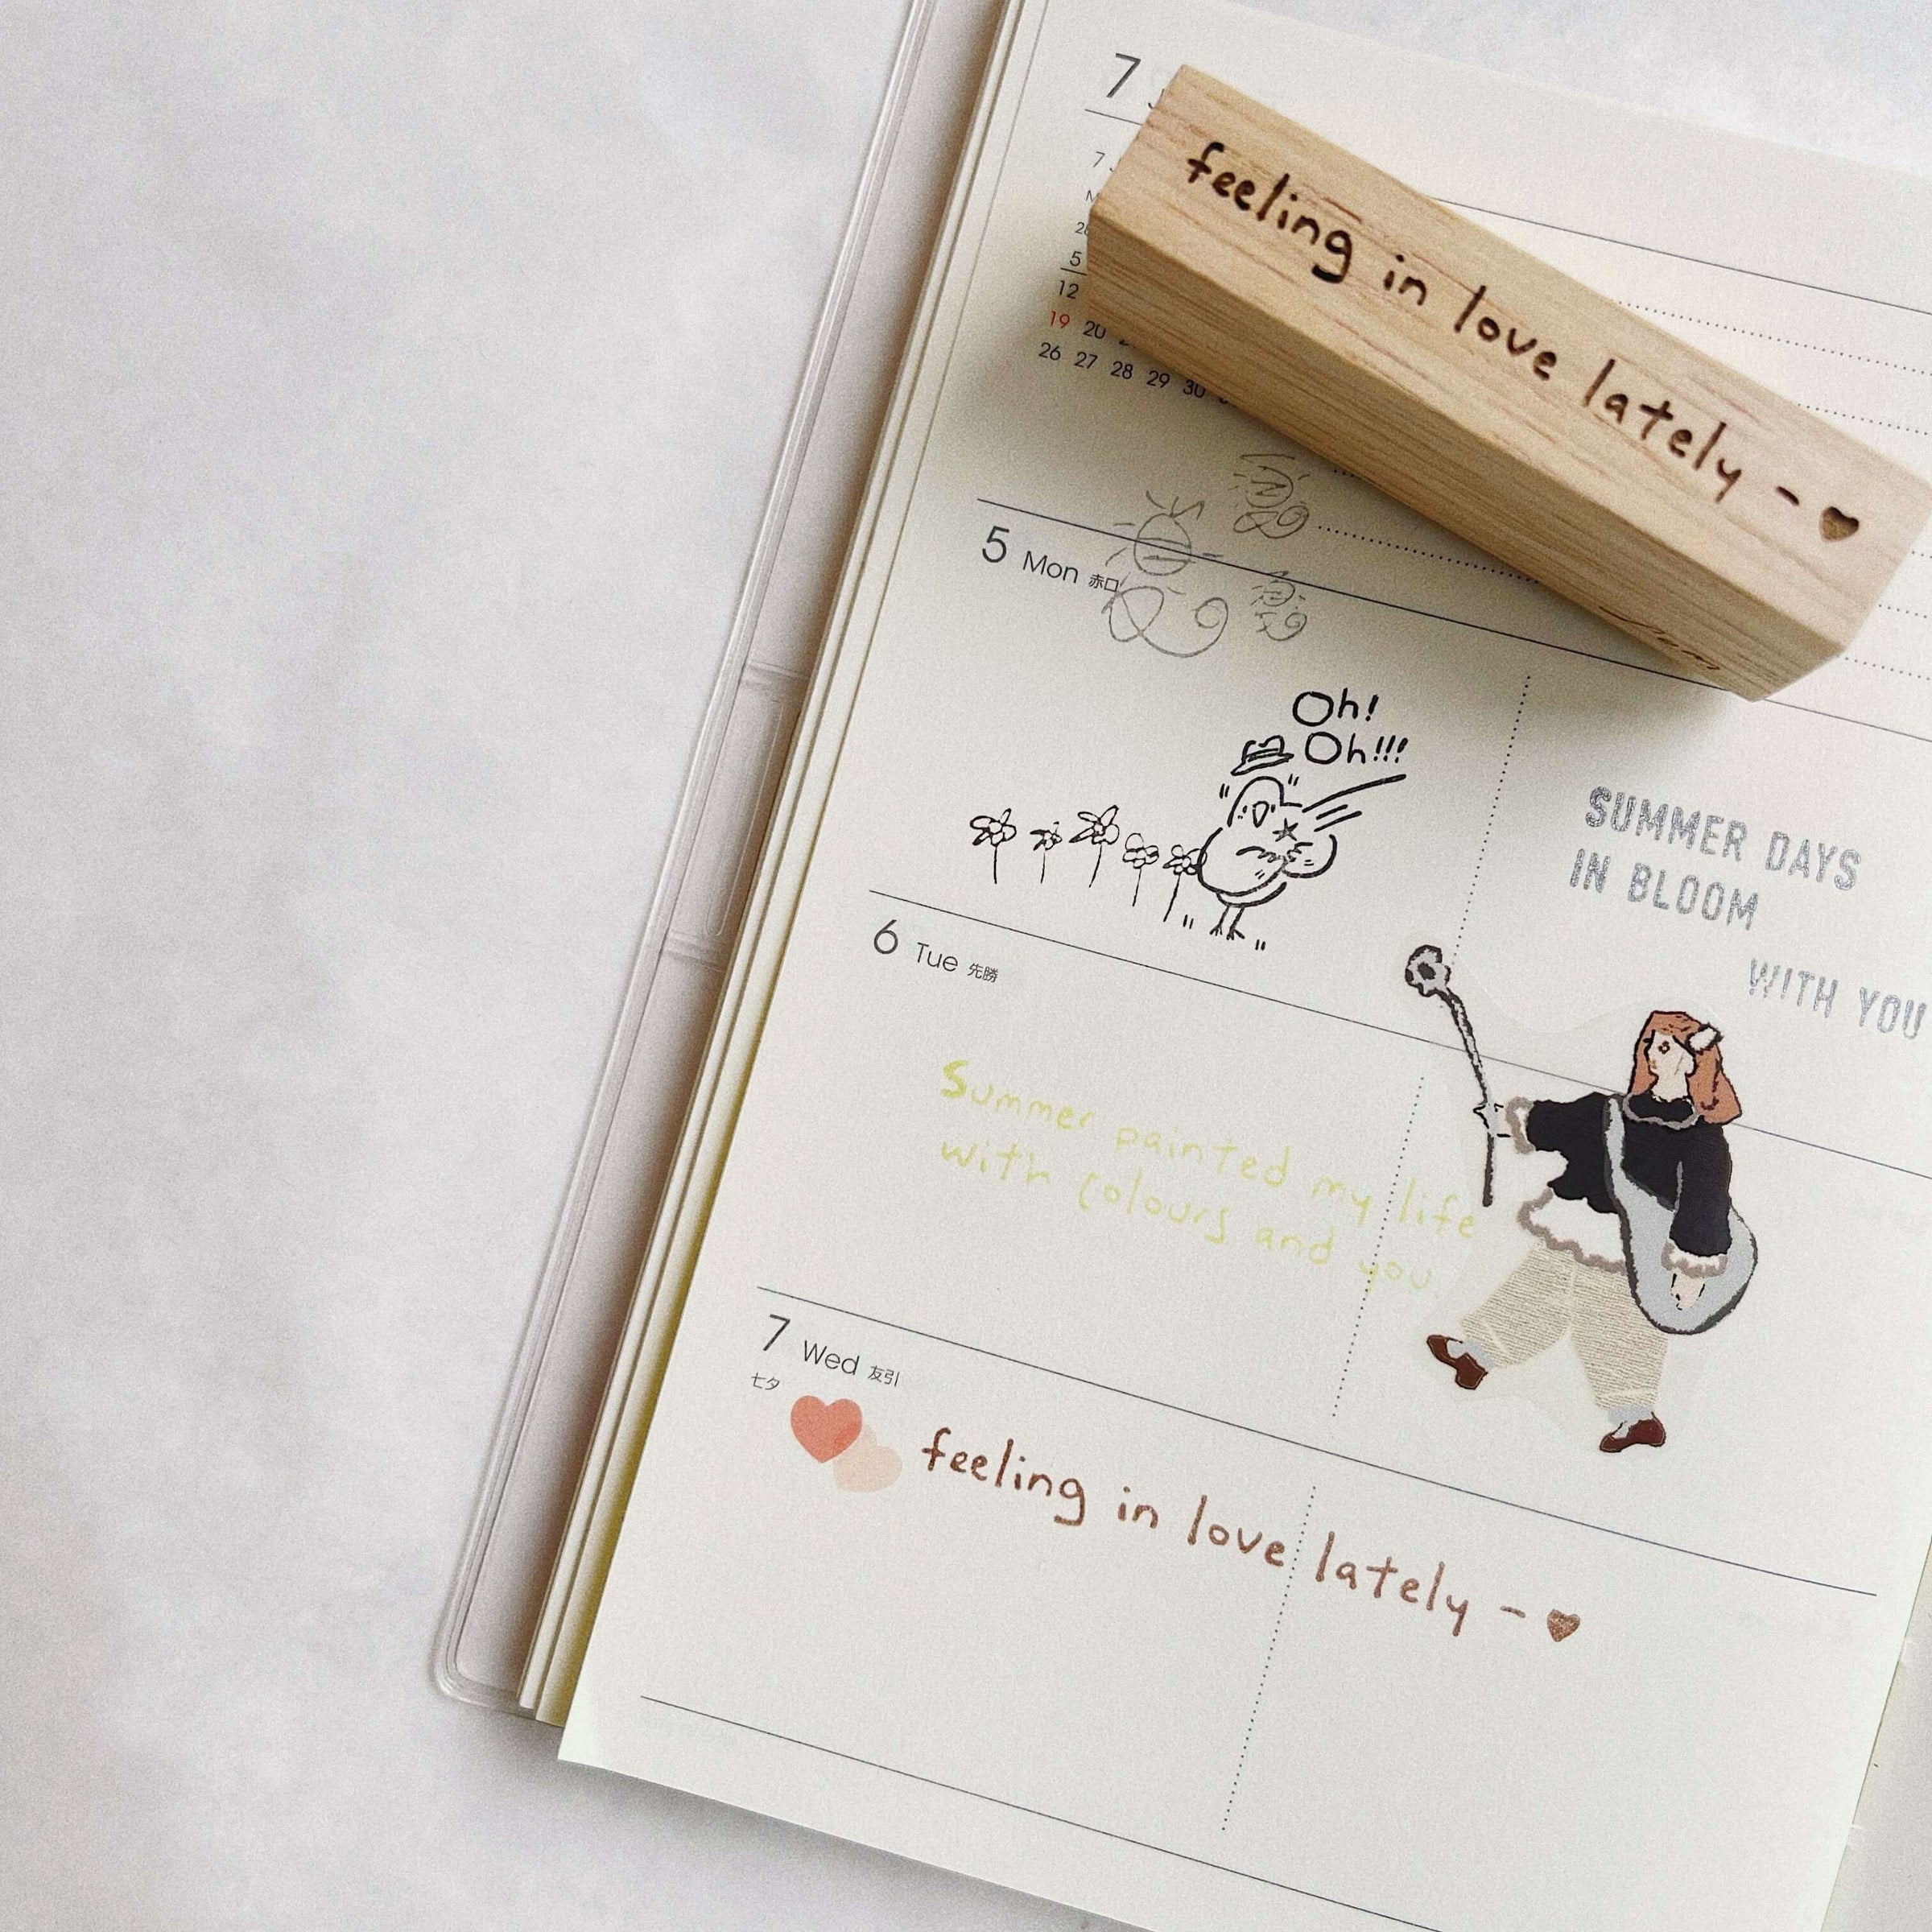 7
feeling in love lately - ♥
7
5
12
19 20
26 27 28 29 30
5 Mon 赤口
Oh!
Oh!!!
SUMMER DAYS
IN BLOOM
WITH YOU
6 Tue 先勝
Summer painted my life
with colours and you.
7 Wed 友引
七夕
feeling in love lately - ♥